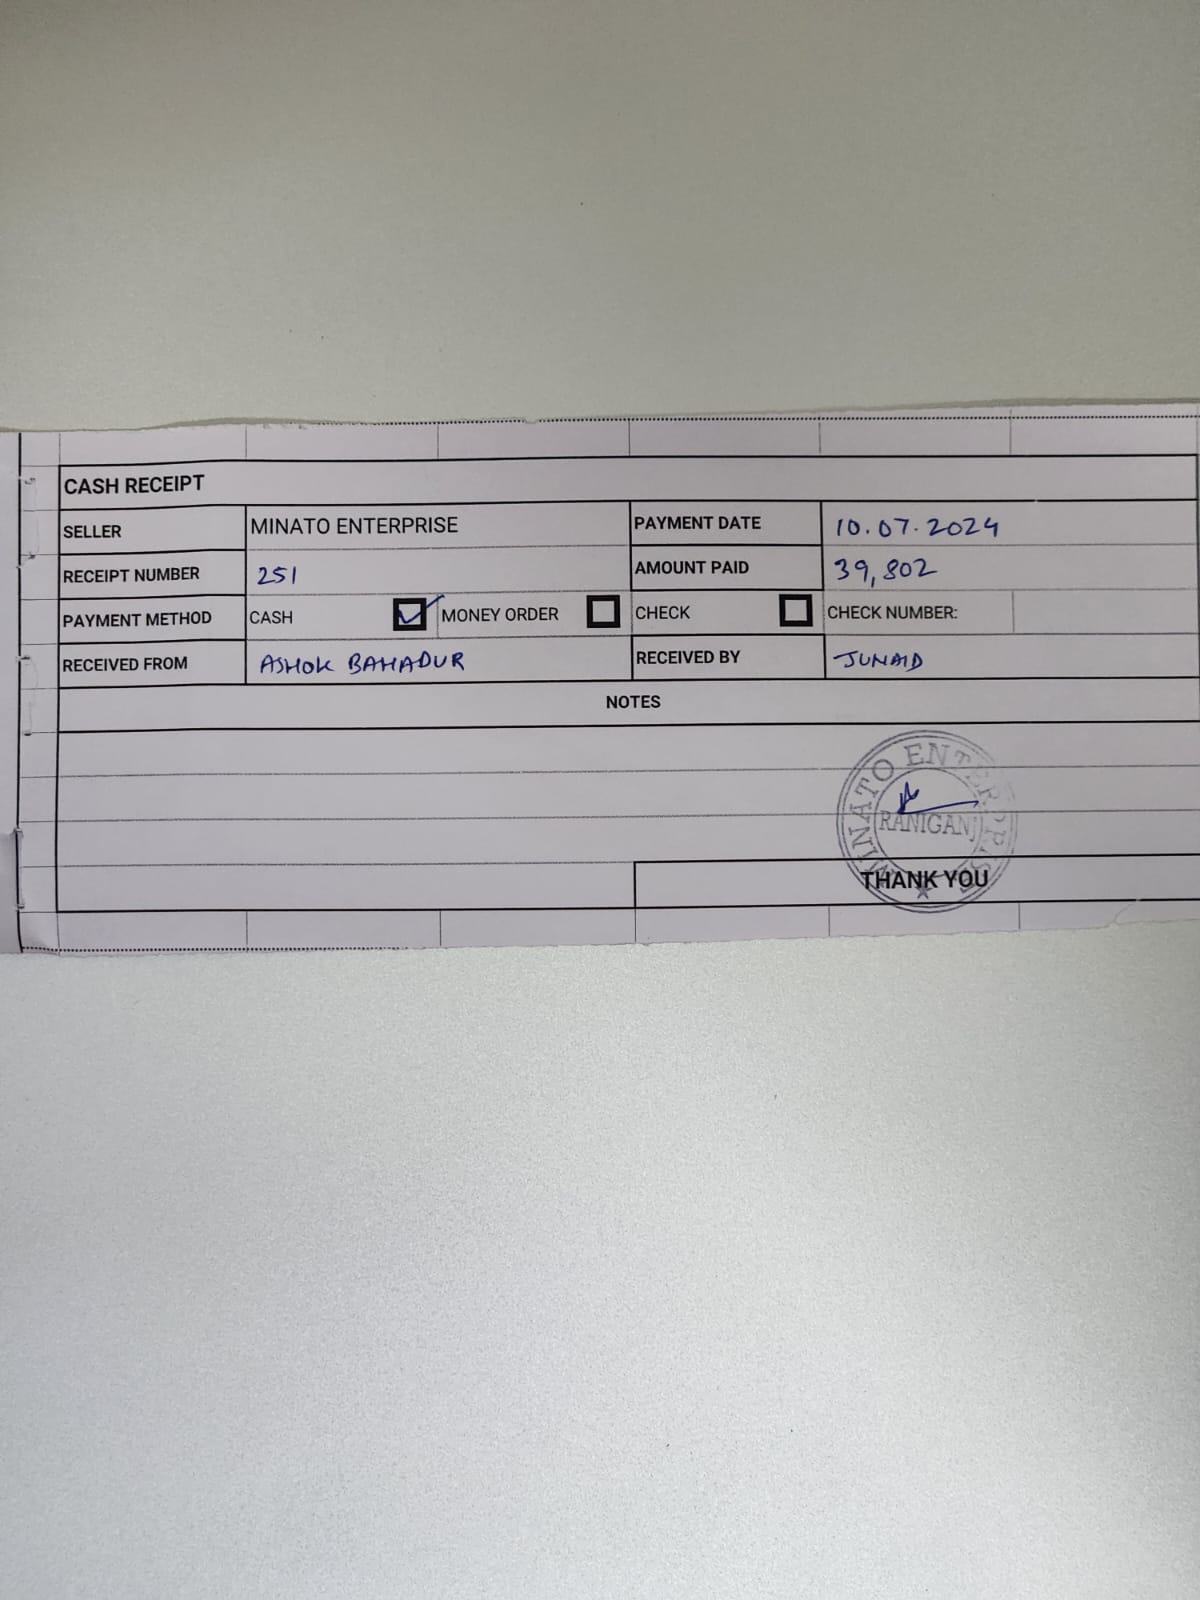 CASH RECEIPT
SELLER MINATO ENTERPRISE PAYMENT DATE 10.07.2024
RECEIPT NUMBER 251 AMOUNT PAID 39,802
PAYMENT METHOD CASH MONEY ORDER CHECK CHECK NUMBER:
RECEIVED FROM ASHOK BAHADUR RECEIVED BY JUNAID
NOTES
MINATO ENTERPRISE
RANIGANJ
THANK YOU